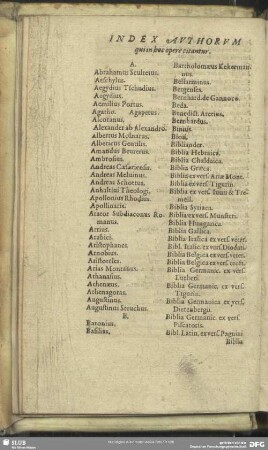 INDEX AVTHORVM
qui in hoc opere citantur.
A.
Abrahamus Scultetus.
Aeschylus.
Aegydius Tschudius.
Aegysius.
Aemilius Portus.
Agatho. Agapetus.
Alcoranus.
Alexander ab Alexandro.
Albertus Molnarus.
Albericus Gentilis.
Amandus Beurerus.
Ambrosius.
Andreas Caesariensis.
Andreas Melvinus.
Andreas Schottus.
Anhaltini Theologi.
Apollonius Rhodius.
Apollinaris.
Arator Subdiaconus Ro-
manus.
Arrius.
Arabici.
Aristophanes.
Arnobius.
Aristoteles.
Arias Montanus.
Athanasius.
Athenaeus.
Athenagoras.
Augustinus.
Augustinus Steuchus.
B.
Baronius.
Basilius.
Bartholomaeus Keckerman-
nus.
Bellarminus.
Bergensis.
Bernhard. de Gannoca.
Beda.
Benedict. Aretius.
Bernhardus.
Binius.
Bloss.
Bibliander.
Biblia Hebraica.
Biblia Chaldaica.
Biblia Graeca.
Biblia ex vers. Ariae Mont.
Biblia ex vers. Tigurin.
Biblia ex vers. Iunii & Tre-
mell.
Biblia Syriaca.
Biblia ex vers. Munsteri.
Biblia Hungarica.
Biblia Gallica.
Biblia Italica ex vers. veter.
Bibl. Italic. ex vers. Diodati.
Biblia Belgica ex vers. veter.
Biblia Belgica ex vers. recet.
Biblia Germanic. ex vers.
Lutheri.
Biblia Germanic. ex vers.
Tigurin.
Biblia Germanica ex vers.
Dietenbergii
Biblia Germanic. ex vers.
Piscatoris.
Bibl. Latin. ex vers. Pagnini
Biblia
SLUB
DFG